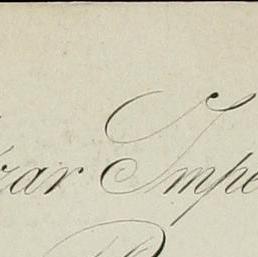 zar Impe